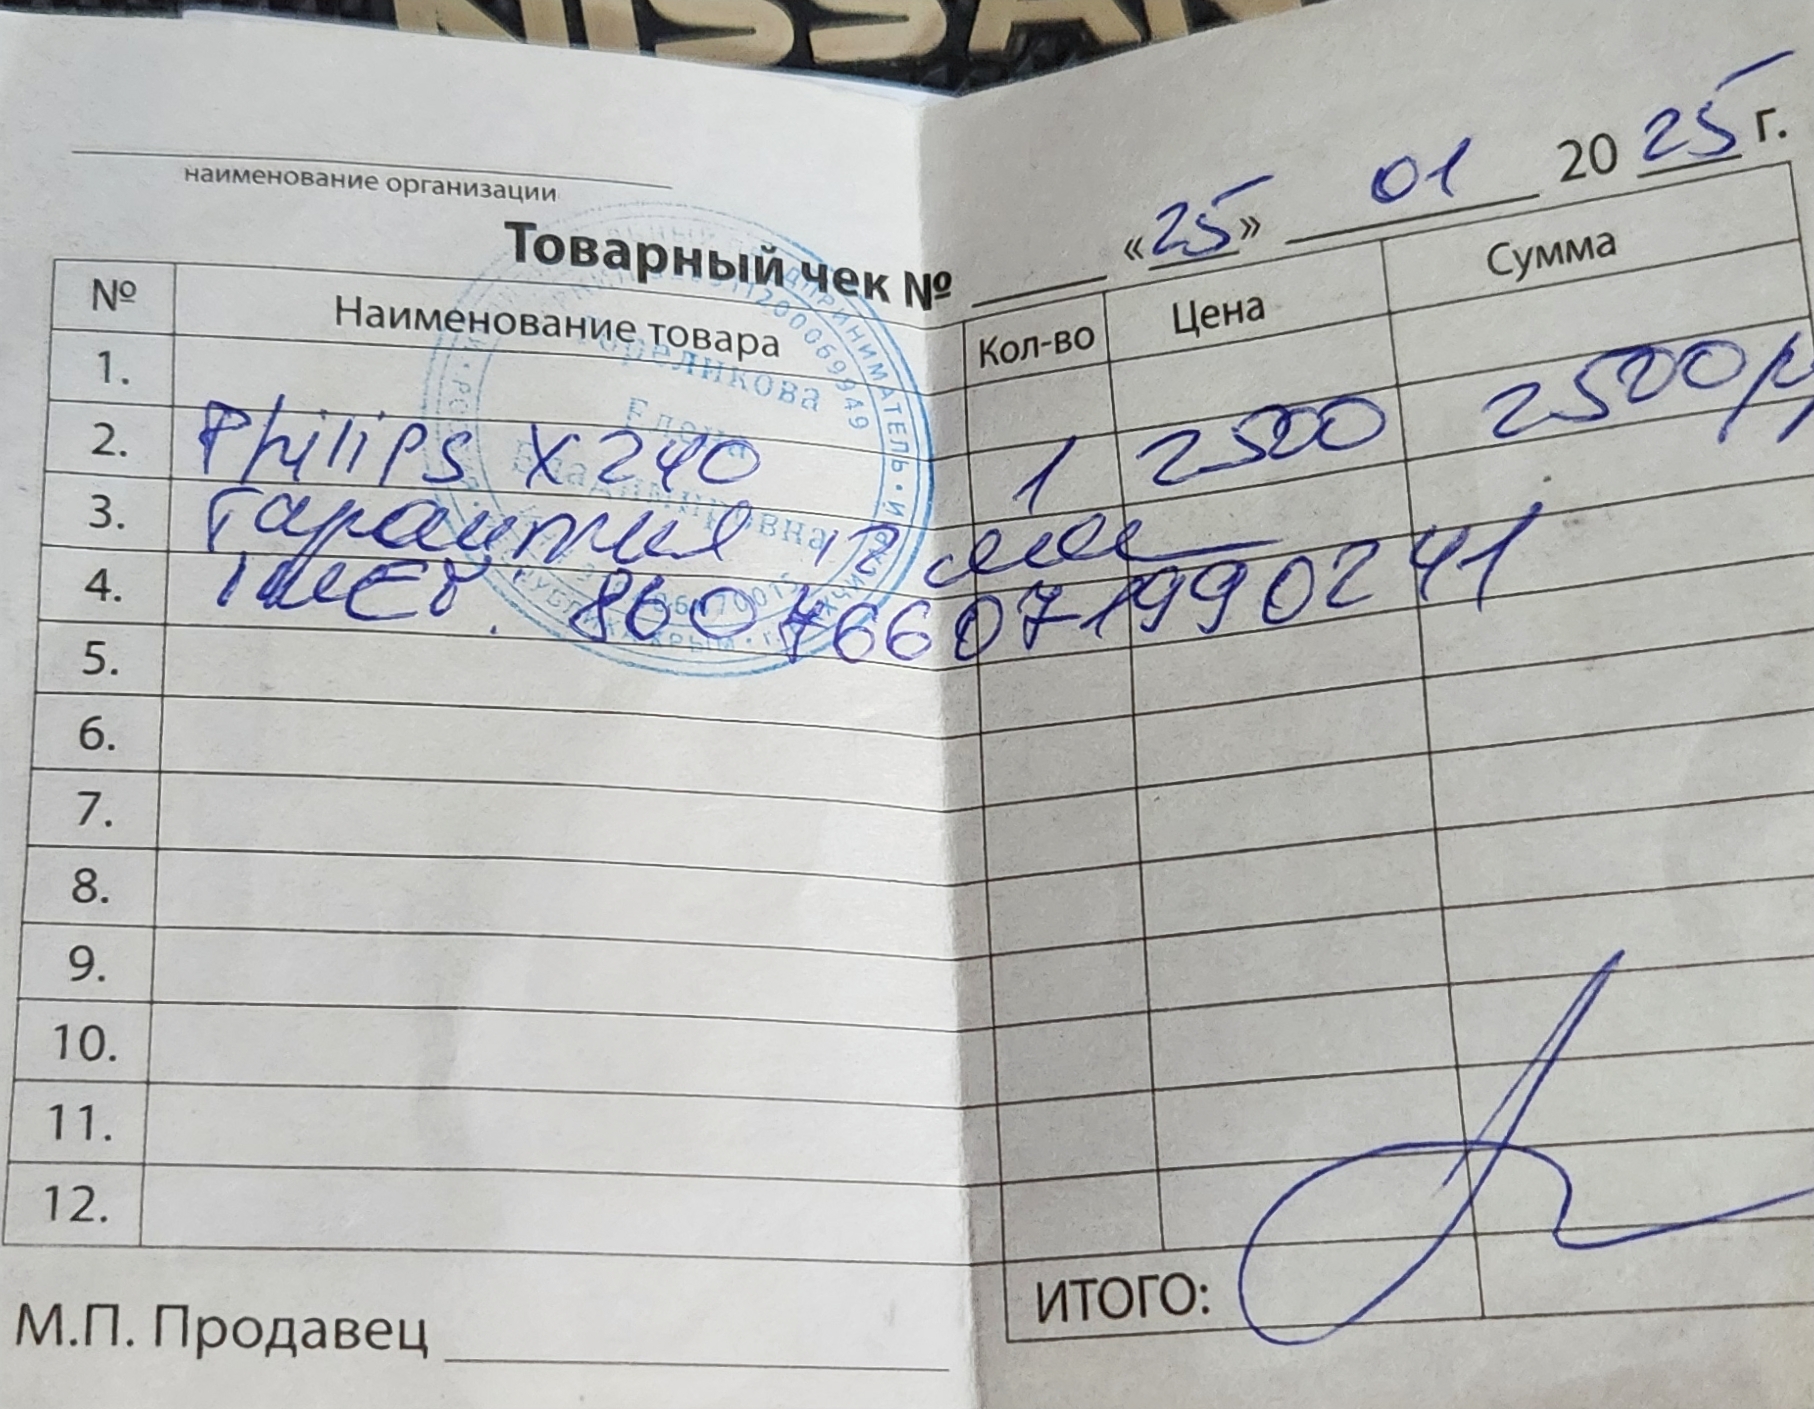 NISSAN
наименование организации
Товарный чек № «25» 01 2025 г.
№ Наименование товара Кол-во Цена Сумма
1.
2. Philips X240 1 2500 2500р
3. Гарантия 12 мес
4. IMEI: 860766071990241
5.
6.
7.
8.
9.
10.
11.
12.
ИТОГО:
М.П. Продавец
Гореликова
Елена
Владимировна